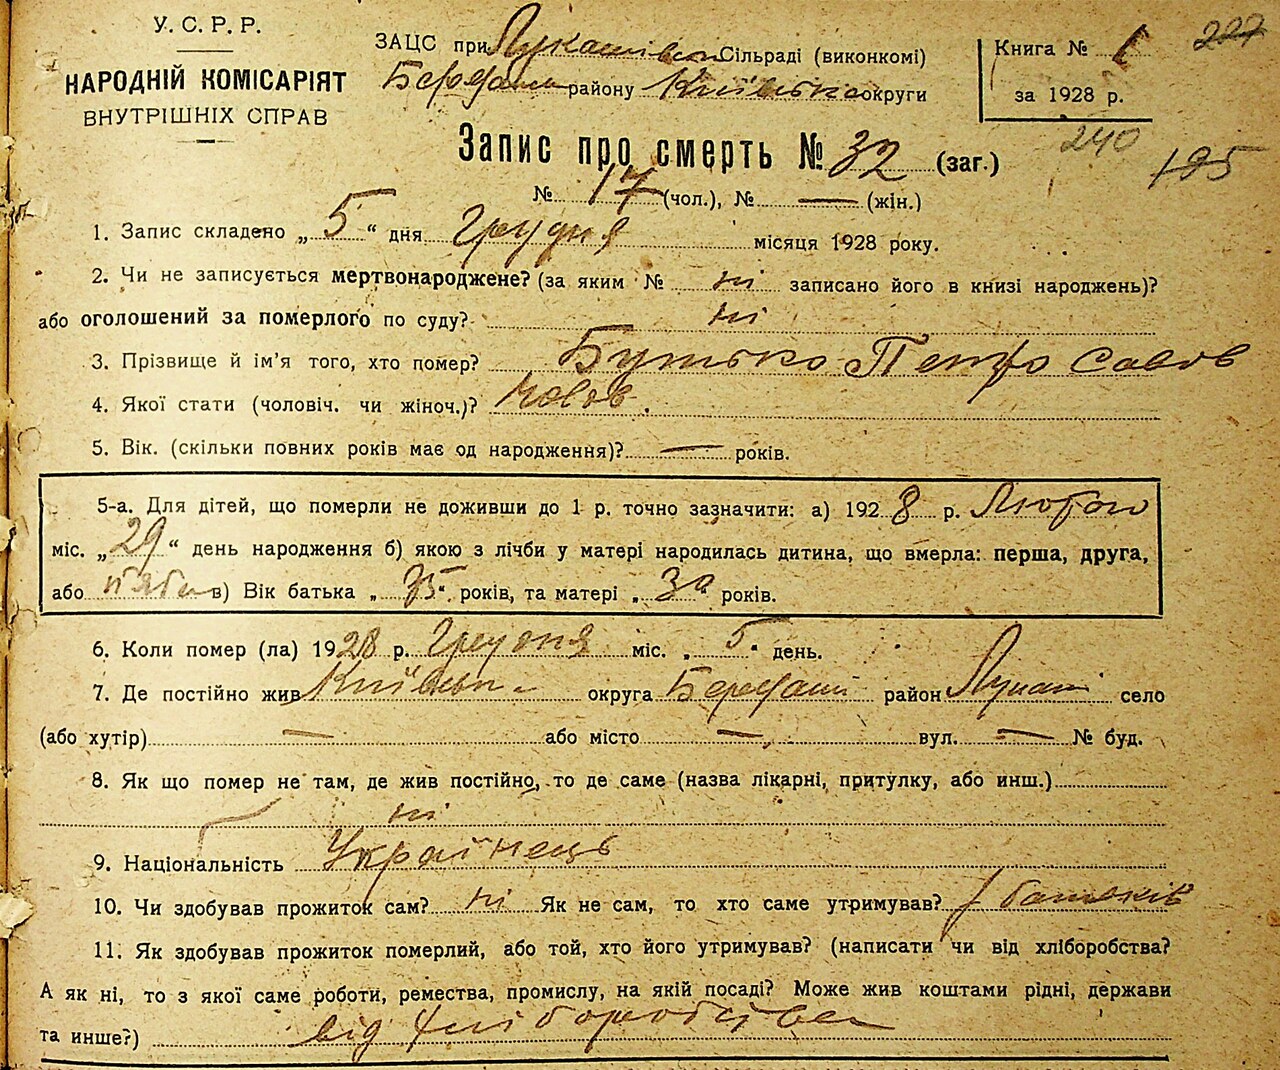 У. С. Р. Р.
НАРОДНІЙ КОМІСАРІЯТ
ВНУТРІШНІХ СПРАВ
ЗАЦС при Лукашівск Сільраді (виконкомі)
району Київська округи
Книга № 1
за 1928 р.
227
240
195
Запис про смерть № 32 (заг.)
№ 17 (чол.), № — (жін.)
1. Запис складено „ 5 “ дня Грудня місяця 1928 року.
2. Чи не записується мертвонароджене? (за яким № ні записано його в книзі народжень)?
або оголошений за померлого по суду? ні
3. Прізвище й ім'я того, хто помер? Бутько Петро Савов
4. Якої стати (чоловіч. чи жіноч.)? Чолов.
5. Вік. (скільки повних років має од народження)? — років.
5-а. Для дітей, що померли не доживши до 1 р. точно зазначити: а) 1928 р. Лютого
міс. „29“ день народження б) якою з лічби у матері народилась дитина, що вмерла: перша, друга,
або в) Вік батька „35“ років, та матері „30“ років.
6. Коли помер (ла) 1928 р. Грудня міс. „5“ день.
7. Де постійно жив Київськ округа район Лукаш село
(або хутір) — або місто — вул. — № буд.
8. Як що помер не там, де жив постійно, то де саме (назва лікарні, притулку, або инш.)
ні
9. Національність Українець
10. Чи здобував прожиток сам? ні Як не сам, то хто саме утримував? у батьків
11. Як здобував прожиток померлий, або той, хто його утримував? (написати чи від хліборобства?
А як ні, то з якої саме роботи, ремества, промислу, на якій посаді? Може жив коштами рідні, держави
та инше?) від хліборобства